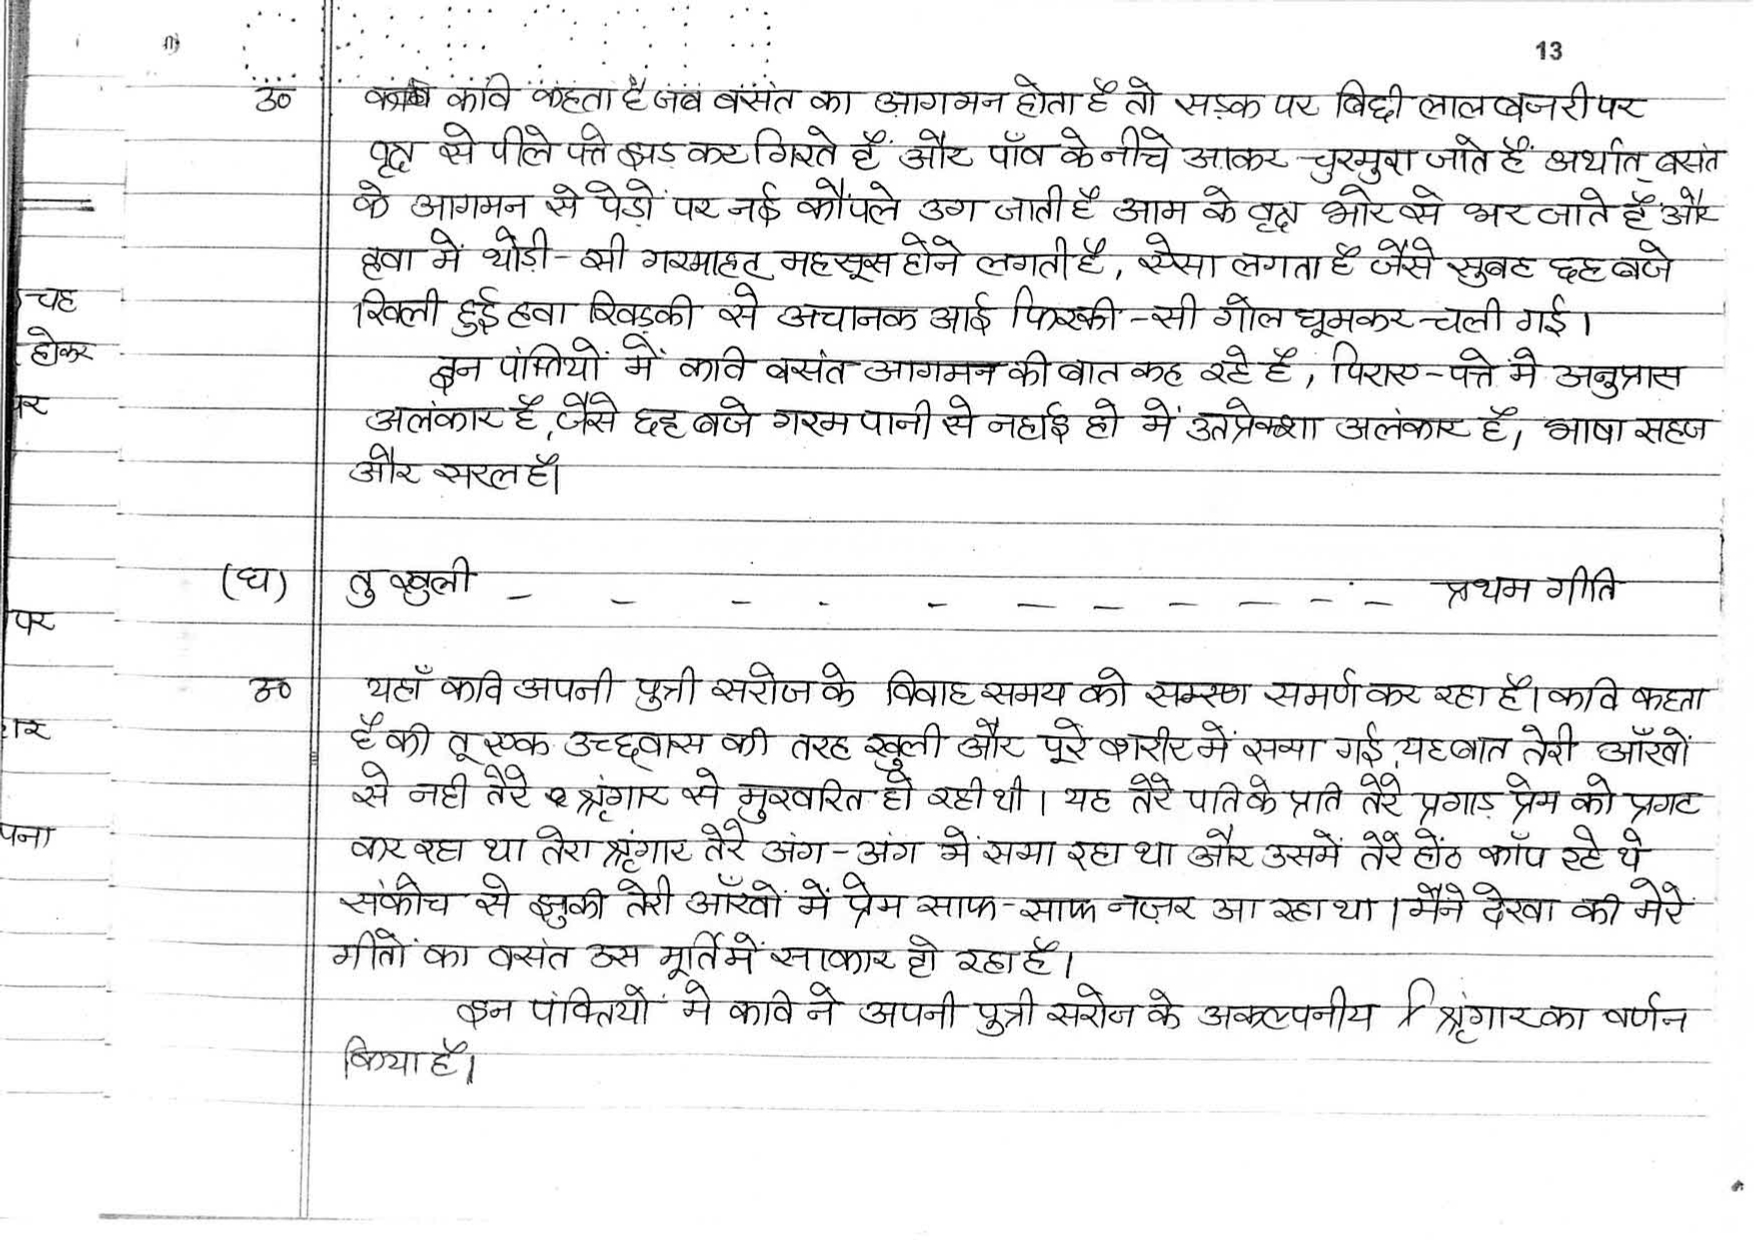 13
उ० कवि कहता है जब बसंत का आगमन होता है तो सड़क पर बिछी लाल बजरी पर
वृक्ष से पीले पत्ते झड़ कर गिरते हैं और पाँव के नीचे आकर चुरमुरा जाते हैं अर्थात् बसंत
के आगमन से पेड़ो पर नई कौपले उग जाती है आम के वृक्ष भोर से भर जाते हैं और
हवा में थोड़ी-सी गरमाहट महसूस होने लगती है, ऐसा लगता है जैसे सुबह छह बजे
खिली हुई हवा खिड़की से अचानक आई फिरकी-सी गोल घूमकर चली गई।
इन पंक्तियों में कवि बसंत आगमन की बात कह रहे है, पिराए-पत्ते मे अनुप्रास
अलंकार है, जैसे छह बजे गरम पानी से नहाई हो में उतप्रेक्शा अलंकार है, भाषा सहज
और सरल है।
(घ) तु खुली _ _ _ _ _ _ _ _ _ _ _ _ प्रथम गीति
उ० यहाँ कवि अपनी पुत्री सरोज के विवाह समय को समर्ण कर रहा है। कवि कहता
है की तू एक उच्छ्वास की तरह खुली और पूरे शरीर में समा गई, यह बात तेरी आँखों
से नही तेरे श्रृंगार से मुखरित हो रही थी। यह तेरे पति के प्रति तेरे प्रगाड़ प्रेम को प्रगट
कर रहा था तेरा श्रृंगार तेरे अंग-अंग में समा रहा था और उसमें तेरे होंठ काँप रहे थे
संकोच से झुकी तेरी आँखों में प्रेम साफ-साफ नज़र आ रहा था। मैने देखा की मेरे
गीतों का वसंत उस मूर्ति में साकार हो रहा है।
इन पंक्तियों मे कवि ने अपनी पुत्री सरोज के अकल्पनीय श्रृंगार का वर्णन
किया है।
चह
होकर
पर
पर
पना